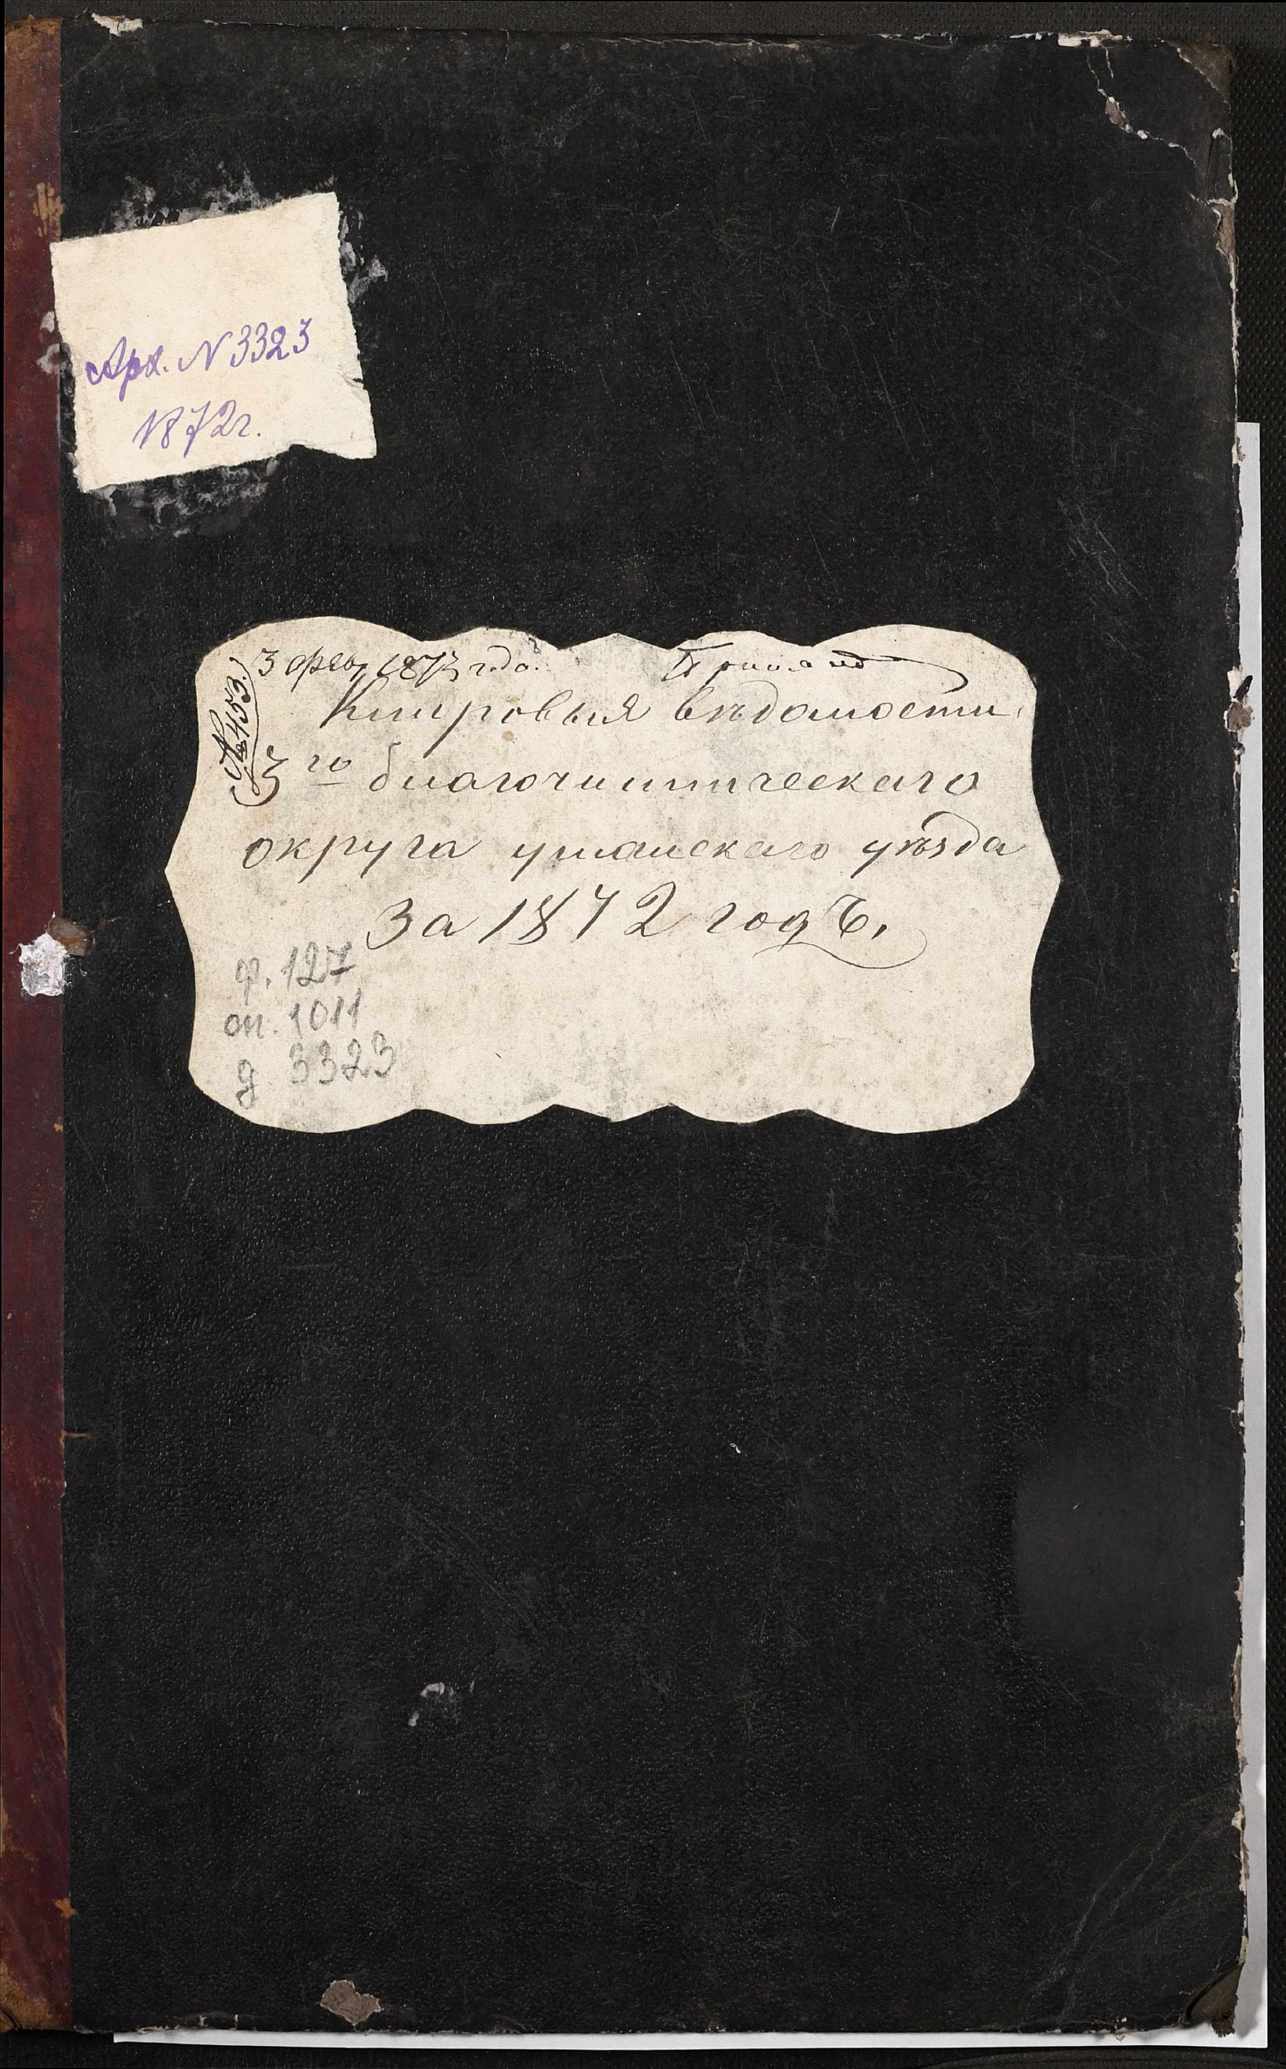 Арх. N 3323
1872г.
3 фев. 1873 года.
№ 453.
Клировыя вѣдомости
3го благочинническаго
округа уманскаго уѣзда
за 1872 годъ.
ф. 127
оп. 1011
д 3323